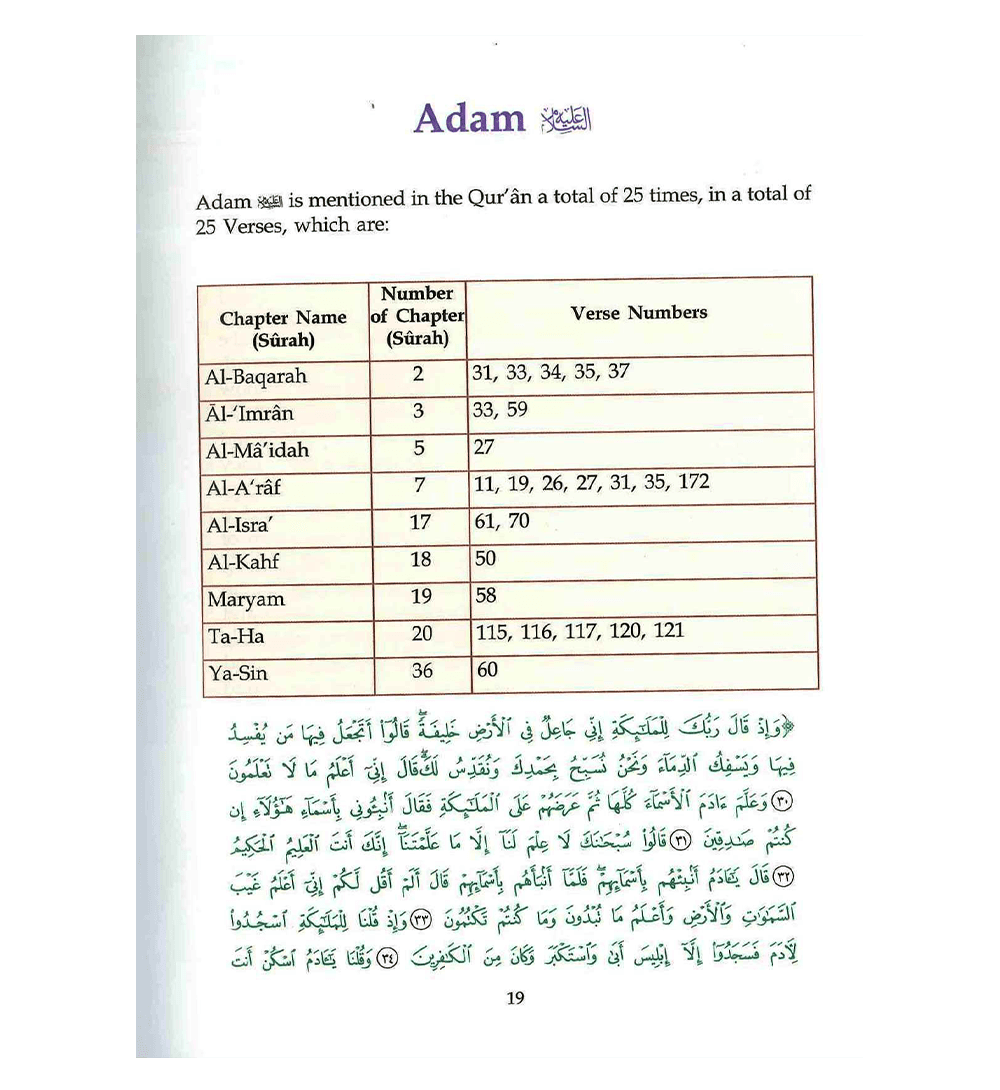 Adam عليه السلام
Adam عليه السلام is mentioned in the Qur’ân a total of 25 times, in a total of
25 Verses, which are:
Chapter Name (Sûrah) Number of Chapter (Sûrah) Verse Numbers
Al-Baqarah 2 31, 33, 34, 35, 37
Āl-‘Imrân 3 33, 59
Al-Mâ’idah 5 27
Al-A‘râf 7 11, 19, 26, 27, 31, 35, 172
Al-Isra’ 17 61, 70
Al-Kahf 18 50
Maryam 19 58
Ta-Ha 20 115, 116, 117, 120, 121
Ya-Sin 36 60
﴿وَإِذْ قَالَ رَبُّكَ لِلْمَلَٰٓئِكَةِ إِنِّي جَاعِلٌ فِي ٱلْأَرْضِ خَلِيفَةً ۖ قَالُوٓا۟ أَتَجْعَلُ فِيهَا مَن يُفْسِدُ
فِيهَا وَيَسْفِكُ ٱلدِّمَآءَ وَنَحْنُ نُسَبِّحُ بِحَمْدِكَ وَنُقَدِّسُ لَكَ ۖ قَالَ إِنِّيٓ أَعْلَمُ مَا لَا تَعْلَمُونَ
٣٠ وَعَلَّمَ ءَادَمَ ٱلْأَسْمَآءَ كُلَّهَا ثُمَّ عَرَضَهُمْ عَلَى ٱلْمَلَٰٓئِكَةِ فَقَالَ أَنۢبِـُٔونِي بِأَسْمَآءِ هَٰٓؤُلَآءِ إِن
كُنتُمْ صَٰدِقِينَ ٣١ قَالُوا۟ سُبْحَٰنَكَ لَا عِلْمَ لَنَآ إِلَّا مَا عَلَّمْتَنَآ ۖ إِنَّكَ أَنتَ ٱلْعَلِيمُ ٱلْحَكِيمُ
٣٢ قَالَ يَٰٓـَٔادَمُ أَنۢبِئْهُم بِأَسْمَآئِهِمْ ۖ فَلَمَّآ أَنۢبَأَهُم بِأَسْمَآئِهِمْ قَالَ أَلَمْ أَقُل لَّكُمْ إِنِّيٓ أَعْلَمُ غَيْبَ
ٱلسَّمَٰوَٰتِ وَٱلْأَرْضِ وَأَعْلَمُ مَا تُبْدُونَ وَمَا كُنتُمْ تَكْتُمُونَ ٣٣ وَإِذْ قُلْنَا لِلْمَلَٰٓئِكَةِ ٱسْجُدُوا۟
لِـَٔادَمَ فَسَجَدُوٓا۟ إِلَّآ إِبْلِيسَ أَبَىٰ وَٱسْتَكْبَرَ وَكَانَ مِنَ ٱلْكَٰفِرِينَ ٣٤ وَقُلْنَا يَٰٓـَٔادَمُ ٱسْكُنْ أَنتَ
19